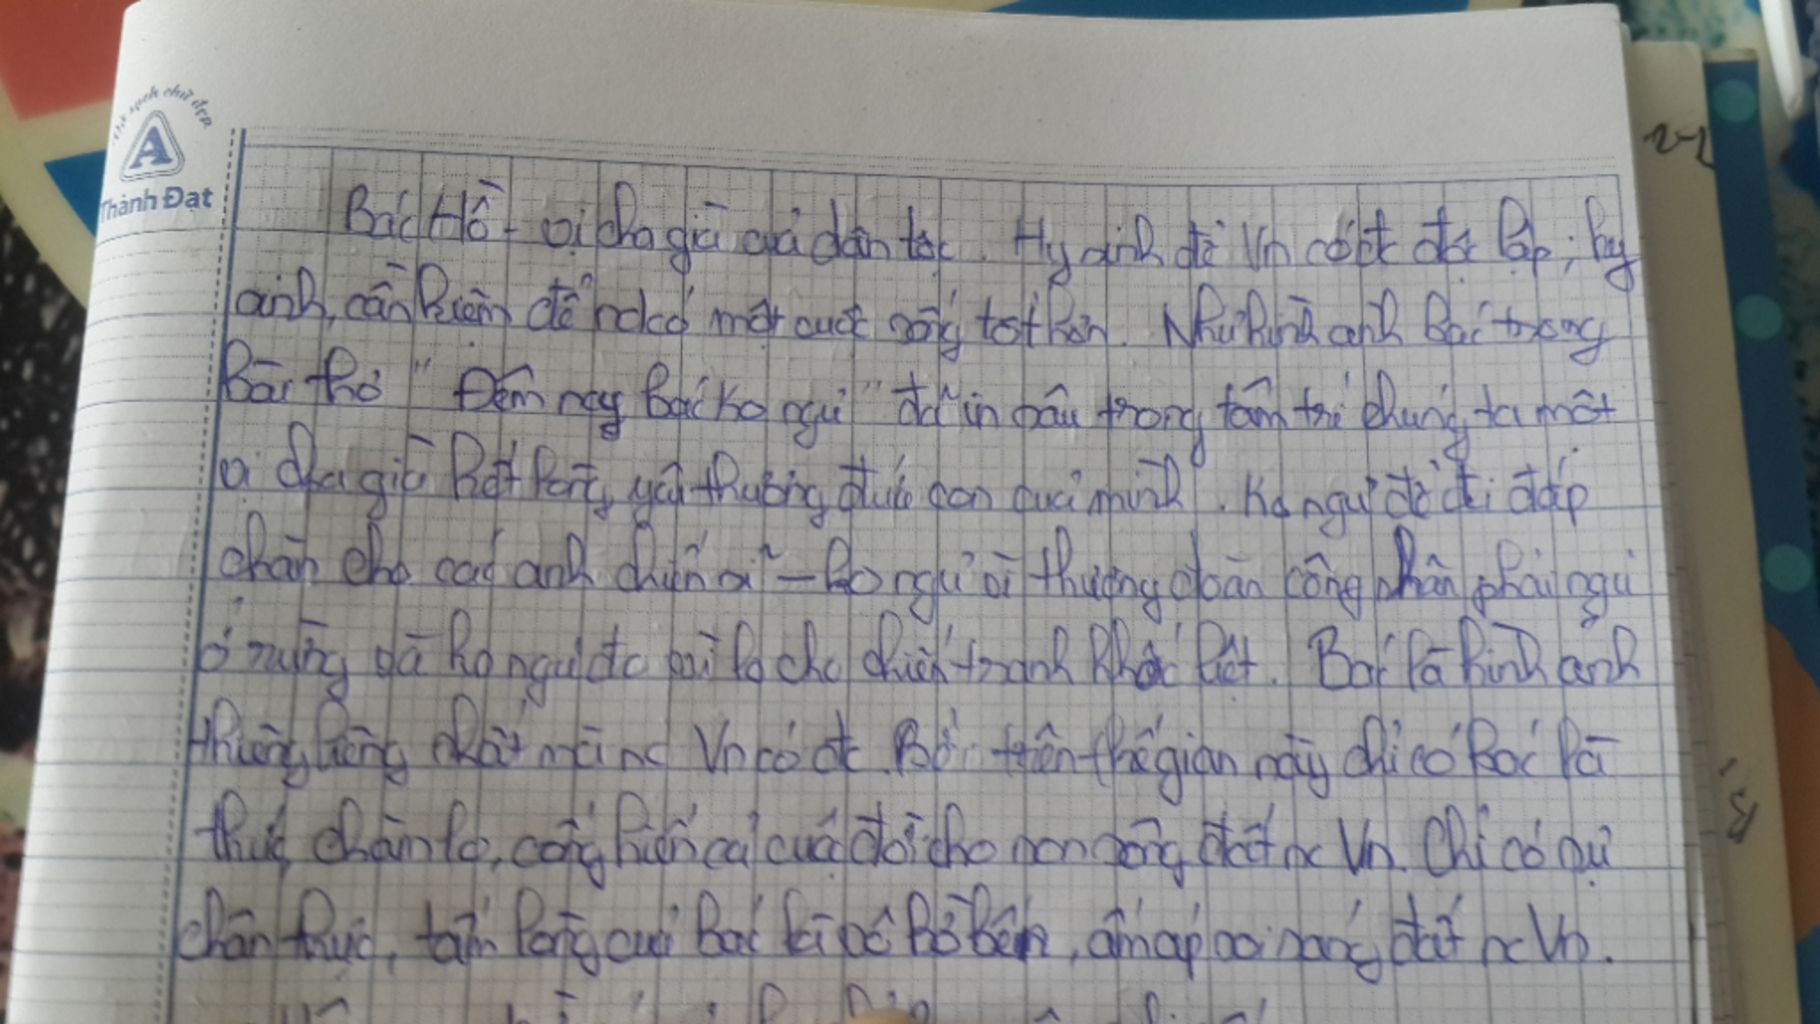 Vở sạch chữ đẹp
A
Thành Đạt
Bác Hồ - vị cha già của dân tộc. Hy sinh để Vn có đc độc lập, hy
sinh, cần kiệm để nd có một cuộc sống tốt hơn. Như hình ảnh Bác trong
Bài thơ "Đêm nay Bác ko ngủ" đã in sâu trong tâm trí chúng ta một
vị cha già hết lòng yêu thương đứa con của mình. Ko ngủ để đi đắp
chăn cho các anh chiến sĩ - ko ngủ vì thương đoàn công nhân phải ngủ
ở rừng và ko ngủ đc vì lo cho chiến tranh khốc liệt. Bác là hình ảnh
thiêng liêng nhất mà nc Vn có đc. Bởi trên thế gian này chỉ có Bác là
thức, chăm lo, cống hiến cả cuộc đời cho non sông đất nc Vn. Chỉ có sự
chân thực, tấm lòng của Bác là vô bờ bến, ấm áp soi sáng đất nc Vn.